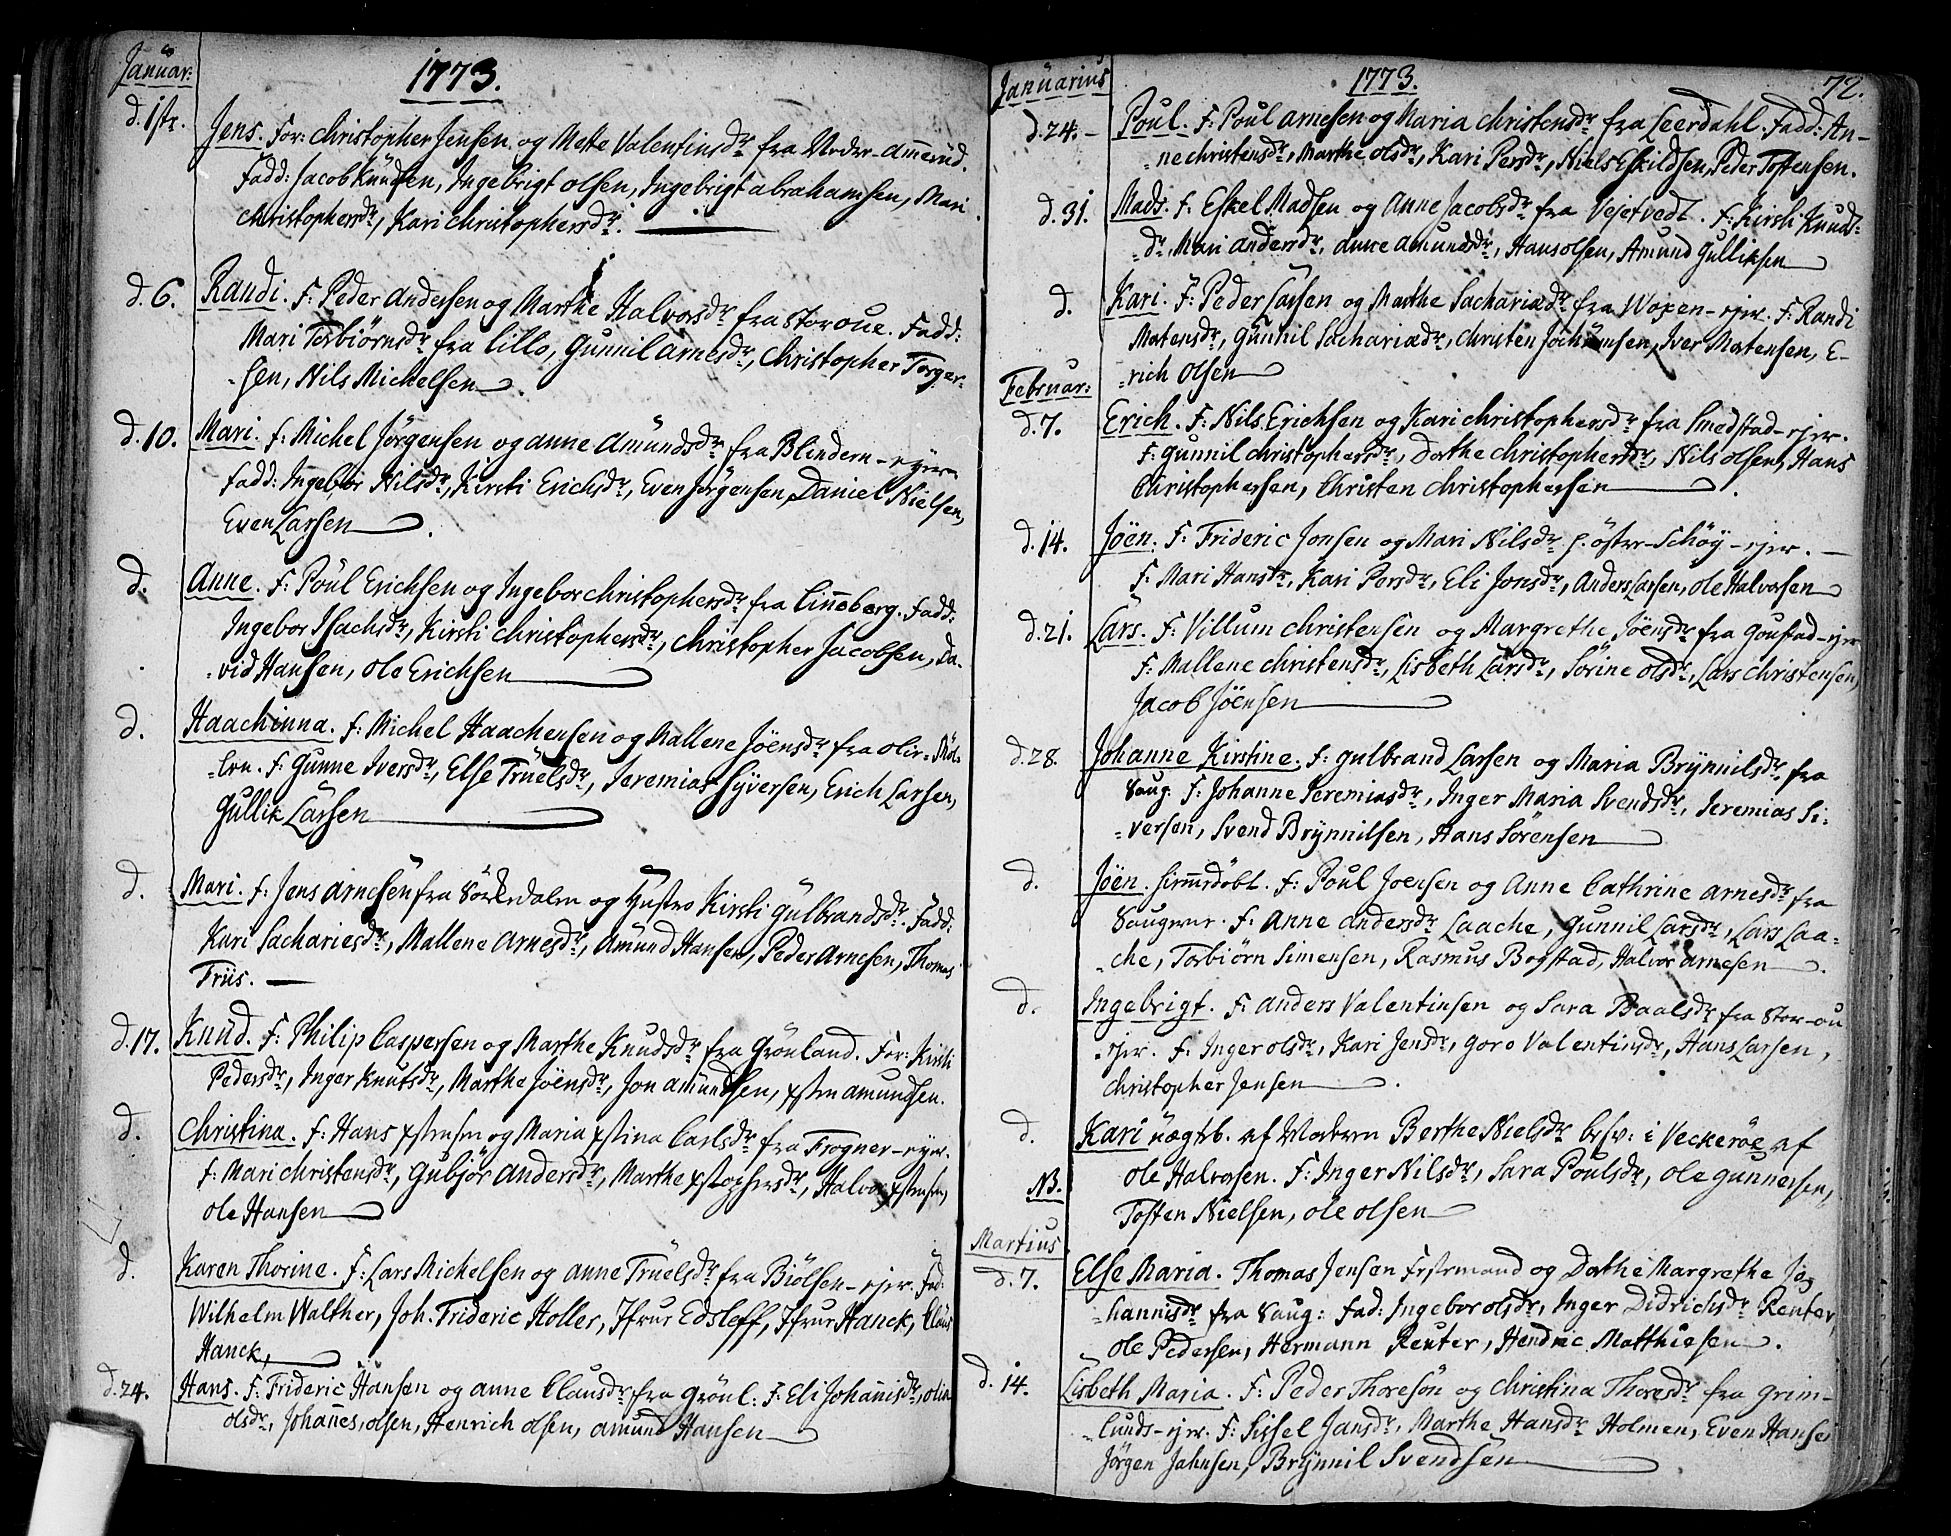 Januar:
1773.
d. 1ste. Jens. For: Christopher Jensen og Mette Valentinsdr fra Neder-Amerud.
Fadd: Jacob Knudsen, Ingebrigt Olsen, Ingebrigt Abrahamsen, Mari
Christophersdr, Kari Christophersdr.
d. 6. Randi. F: Peder Andersen og Marthe Halvorsdr fra Storoue. Fadd:
Mari Torbiørnsdr fra Lillo, Gunnil Arnesdr, Christopher Torger-
sen, Nils Michelsen
d. 10. Mari. f: Michel Jørgensen og Anne Amundsdr fra Blindern-ejer
fadd: Ingebor Nilsdr, Kirsti Erichsdr, Even Jørgensen, Daniel Nielsen,
Even Larsen.
d. Anne. F: Poul Erichsen og Ingebor Christophersdr fra Linneberg. Fadd:
Ingebor Isachsdr, Kirsti Christophersdr, Christopher Jacobsen, Da-
vid Hansen, Ole Erichsen
d. Haachinna. f: Michel Haachensen og Mallene Jöensdr fra Olie-Møl-
len. f: Gunne Iversdr, Else Truelsdr, Jeremias Syversen, Erich Larsen,
Gullik Larsen
d. Mari. f: Jens Arnesen fra Sørkedalen og Hustro Kirsti Gulbrandsdr. Fadd:
Kari Sachariesdr, Mallene Arnesdr, Amund Hansen, Peder Arnesen, Thomas
Friis.
d. 17. Knud. F: Philip Caspersen og Marthe Knudsdr fra Grönland. For: Kirsti
Pedersdr, Inger Knutsdr, Marthe Jöensdr, Jon Amundsen, Xsten Amundsen.
d. Christina. f: Hans Xstensen og Maria Xstina Carlsdr fra Frogner-ejer.
f: Mari Christensdr, Gubjör Andersdr, Marthe Xstophersdr, Halvor Xstensen,
Ole Hansen
d. Karen Thorine. F: Lars Michelsen og Anne Truelsdr fra Biölsen-ejer. Fad:
Wilhelm Walther, Joh. Frideric Holler, Jfrue Edsleff, Jfrue Hanck, Claus
Hanck,
d. 24. Hans. F: Frideric Hansen og Anne Clausdr fra Grönl: F: Eli Johannisdr, Olia
Olsdr, Johannes Olsen, Henrich Olsen, Amund Hansen
Januarius
1773.
72.
d. 24. Poul. F: Poul Arnesen og Maria Christensdr fra Leerdahl. Fadd: An-
ne Christensdr, Marthe Olsdr, Kari Persdr, Niels Eskildsen, Peder Tostensen.
d. 31. Mads. f: Eskel Madsen og Anne Jacobsdr fra Vejetvedt. F: Kirsti Knuds-
dr, Mari Andersdr, Anne Amundsdr, Hans Olsen, Amund Gulliksen
d. Kari. F: Peder Larsen og Marthe Sachariædr fra Woxen-ejer. F: Randi
Mortensdr, Gunnil Sachariædr, Christen Jochumsen, Iver Mortensen, E-
rich Olsen
Februar:
d. 7. Erich. F: Nils Erichsen og Kari Christophersdr fra Smedstad-ejer.
F: Gunnil Christophersdr, Dorthe Christophersdr, Nils Olsen, Hans
Christophersen, Christen Christophersen
d. 14. Jöen. F: Frideric Jonsen og Mari Nilsdr p. Öster-Schöy-ejer.
F: Mari Hansdr, Kari Persdr, Eli Jonsdr, Anders Larsen, Ole Halvorsen
d. 21. Lars. F: Villum Christensen og Margrethe Jöensdr fra Goustad-ejer
F: Mallene Christensdr, Lisbeth Larsdr, Sörine Olsdr, Lars Christensen,
Jacob Jöensen
d. 28. Johanne Kirstine. f: Gulbrand Larsen og Maria Brynnilsdr fra
Saug. F: Johanne Jeremiasdr, Inger Maria Svendsdr, Jeremias Si-
versen, Svend Brynnilsen, Hans Sörensen
d. Jöen. hiemedöbt. F: Poul Joensen og Anne Cathrine Arnesdr fra
Saugener. F: Anne Andersdr Laache, Gunnil Larsdr, Lars Laa-
che, Torbiörn Simensen, Rasmus Bogstad, Halvor Arnesen.
d. Ingebrigt. F: Anders Valentinsen og Sara Paalsdr fra Stor-ou
ejer. F: Inger Olsdr, Kari Jensdr, Goro Valentinsdr, Hans Larsen,
Christopher Jensen.
d. Kari uægteb. af Moderen Berthe Nielsdr besv: i Veckeröe af
Ole Halvorsen. F: Inger Nilsdr, Sara Poulsdr, Ole Gunnersen,
NB.
Tosten Nielsen, Ole Olsen
Martius
d. 7. Else Maria. Thomas Jensen Festemand og Dorthe Margrethe Jo-
hannisdr fra Saug: Fad: Ingebor Olsdr, Inger Didrichsdr Reuter,
Ole Pedersen, Hermann Reuter, Hendric Matthiesen.
d. 14. Lisbeth Maria. F: Peder Thoresön og Christina Thoresdr fra Grim-
lunds-ejer. F: Sissel Jansdr, Marthe Hansdr Holmen, Even Hansen
Jörgen Jahnsen, Brynnil Svendsön